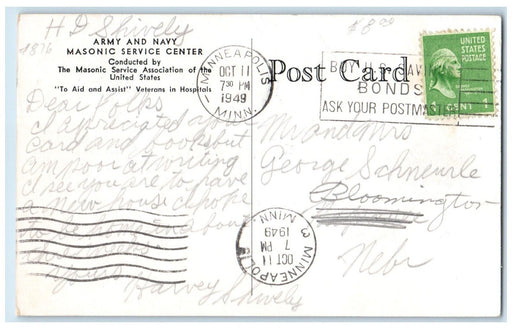 H D Shively
1876
$8.00
ARMY AND NAVY
MASONIC SERVICE CENTER
Conducted by
The Masonic Service Association of the
United States
"To Aid and Assist" Veterans in Hospitals
MINNEAPOLIS
OCT 11
7 30 PM
1949
MINN.
Post Card
BUY U.S. SAVINGS
BONDS
ASK YOUR POSTMASTER
UNITED
STATES
POSTAGE
1 CENT 1
Dear Folks
I apreciated
card and books but
am poor at writing
I see you are to have
a new house I hope
to be home
Yours
Harvey Shively
Mr and Mrs
George Schneurle
Bloomington
Nebr
MINNEAPOLIS
OCT 11
7 PM
1949
3 MINN.